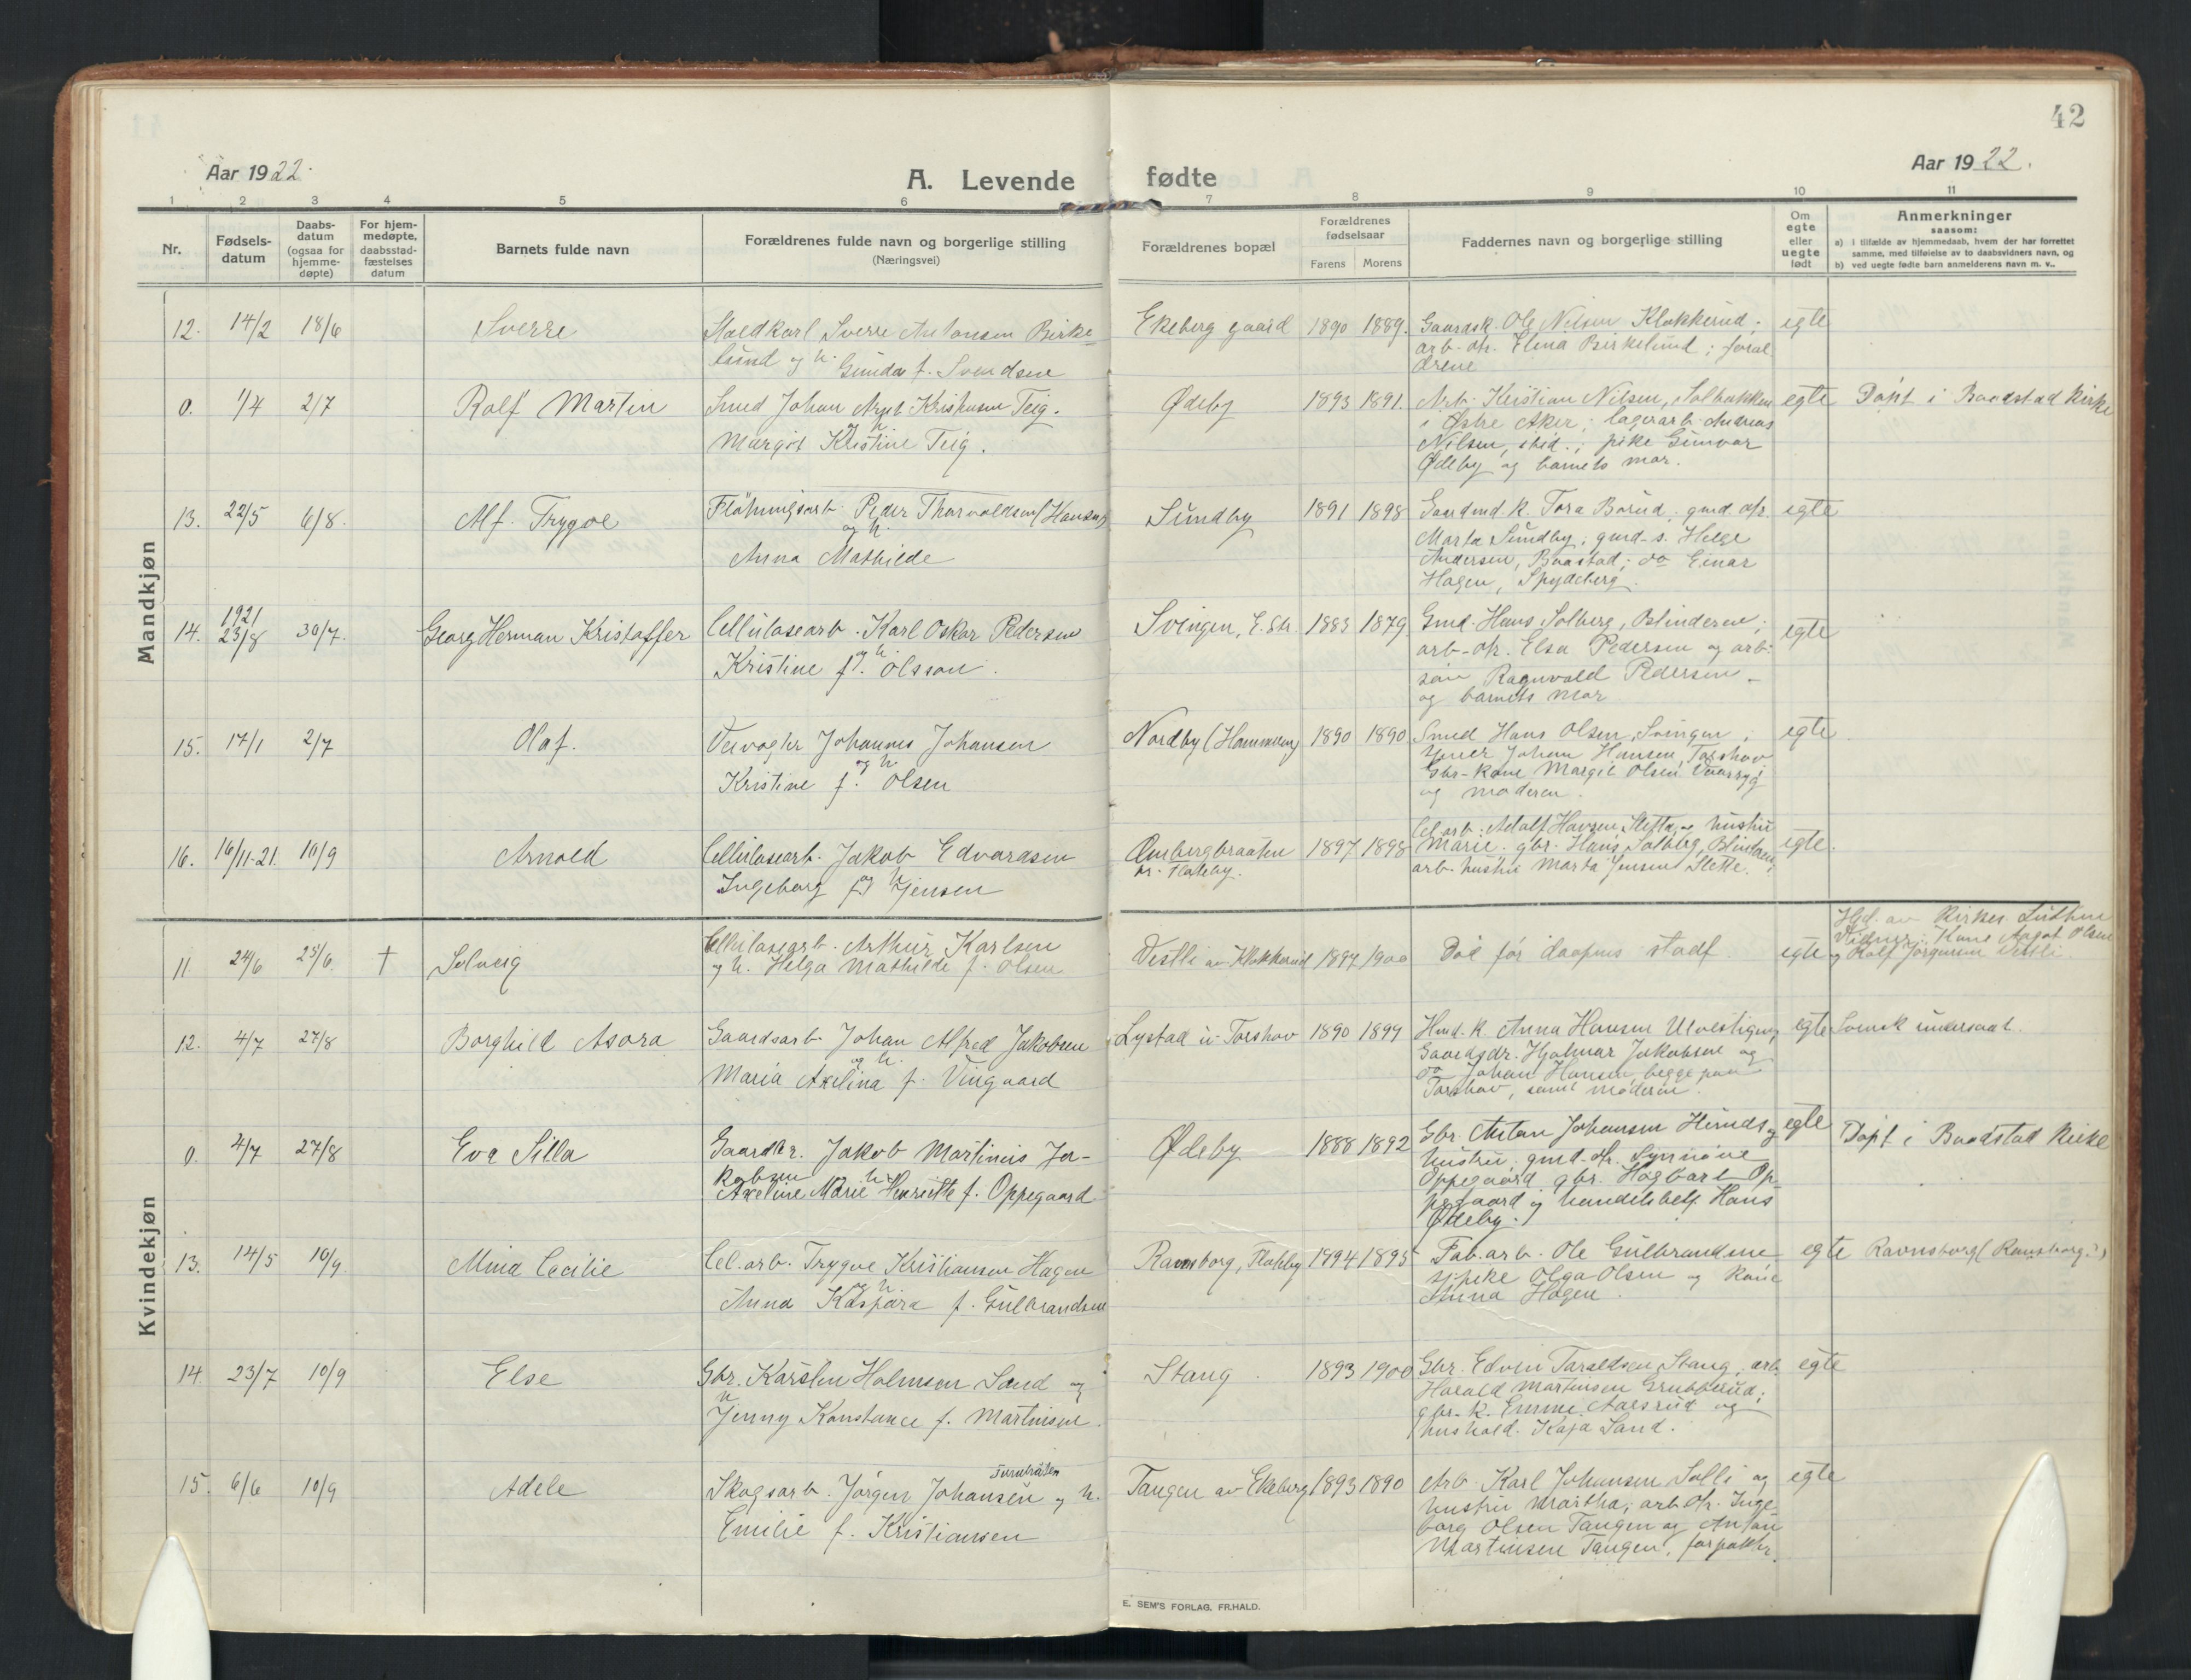 42
Aar 1922.
A. Levende fødte
Aar 1922.
1 2 3 4 5 6 7 8 9 10 11
Nr.
Fødsels-
datum
Daabs-
datum
(ogsaa for
hjemme-
døpte)
For hjem-
medøpte,
daabsstad-
fæstelses
datum
Barnets fulde navn
Forældrenes fulde navn og borgerlige stilling
(Næringsvei)
Forældrenes bopæl
Forældrenes
fødselsaar
Farens Morens
Faddernes navn og borgerlige stilling
Om
egte
eller
uegte
født
Anmerkninger
saasom:
a) i tilfælde av hjemmedaab, hvem der har forrettet
samme, med tilføielse av to daabsvidners navn, og
b) ved uegte fødte barn anmelderens navn m. v..
Mandkjøn
12. 14/2 18/6 Sverre
Staldkarl Sverre Antonsen Birke-
lund og h. Gunda f. Svendsen
Ekeberg gaard 1890 1889.
Gaardsk. Ole Nilsen Klokkerud;
arb. dtr. Elena Birkelund; foræl-
drene
egte
0. 1/4 2/7 Rolf Martin
Smed Johan Kristiansen Teig.
og h.
Margit Kristine Teig.
Ødeby 1893 1891.
Arb. Kristian Nilsen, Solbakken
i Østre Aker; lagerarb. Andreas
Nilsen, ibid.; pike Gunvor
Ødeby og barnets mor.
egte
Døpt i Baadstad kirke
13. 22/5 6/8. Alf Trygve
Fløtningsarb. Peder Thorvaldsen (Hansen)
og h.
Anna Mathilde
Sundby 1891 1898
Gaardmd. k. Tora Borud; gmd. dtr.
Marta Sundby; gmd. s. Helge
Andersen, Baastad; do Einar
Hagen, Spydeberg.
egte
14. 1921
23/8 30/7. Georg Herman Kristoffer
Cellulosearb. Karl Oskar Pedersen
og h.
Kristine f. Olsson.
Svingen, E. Str. 1883 1879
Gmd. Hans Solberg, Blinderen;
arb. dtr. Elsa Pedersen og arb.
søn Ragnvald Pedersen
og barnets mor
egte
15. 17/1 2/7 Olaf.
Veivogter Johannes Johansen
og h.
Kristine f. Olsen
Nordby (Hammeren) 1890 1890
Smed Hans Olsen, Svingen;
Johan Hansen, Torshov
Gbr-kone Margit Olsen
og moderen.
egte.
16. 16/11-21. 10/9 Arnold
Cellulosearb. Jakob Edvardsen
og h.
Ingeborg f. Jensen
Ombergbraaten
pr. Flateby. 1897 1898
Cel. arb. Adolf Hansen Slette og hustru
Marie. gbr. Hans Solberg, Blinderen;
arb. hustru Marta Jensen Slette.
egte.
Kvindekjøn
11. 24/6 25/6. † Solveig
Cellulosearb. Arthur Karlsen
og h. Helga Mathilde f. Olsen
Vestli av Klokkerud 1897 1900
Død før daapens stadf.
egte
Hjd. av kirkes.
Vidner: Kone Olsen
og Rolf Jørgensen Vestli.
12. 4/7 27/8 Borghild Asora
Gaardsarb. Johan Alfred Jakobsen
og h.
Maria Axelina f. Vingaard
Lystad u. Torshov 1890 1899
Hmd. k. Anna Hansen Ulvestigen,
Gaardsdr. Hjalmar Jakobsen og
do Johan Hansen begge paa
Torshov, samt moderen.
egte
Svensk undersaat.
0. 4/7 27/8 Eva Silla
Gaardbr. Jakob Martinius Ja-
kobsen h.
Axeline Marie Henriette f. Oppegaard
Ødeby 1888 1892
Gbr. Anton Johansen og
hustru, gmd. dtr. Synnøve
Oppegaard gbr. Hagbart Op-
pegaard og handelsbetj. Hans
Ødeby.
egte
Døpt i Baadstad kirke
13. 14/5 10/9. Mina Cecilie
Cel. arb. Trygve Kristiansen Hagen
og h.
Anna Kaspara f. Gulbrandsen
Ramsborg, Flateby 1894 1895
Fab. arb. Ole Gulbrandsen
pike Olga Olsen og kone
Anna Hagen.
egte
Ravnsborg (Ramsborg?)
14. 23/7 10/9 Else
Gbr. Karsten Holmsen Sand og
h
Jenny Konstance f. Martinsen.
Stang. 1893 1900
Gbr. Edvin Taraldsen Stang, arb.
Harald Martinsen Grubberud;
gbr. k. Emma Aarsrud og
hushold. Kaja Sand.
egte
15. 6/6 10/9 Adele
Skogsarb. Jørgen Johansen og h.
Emilie f. Kristiansen
Tangen av Ekeberg 1893 1890
Arb. Karl Johansen Solli og
hustru Martha; arb. dtr. Inge-
borg Olsen Tangen og Anton
Martinsen Tangen, forpakter.
egte
E. SEM'S FORLAG. FR.HALD.